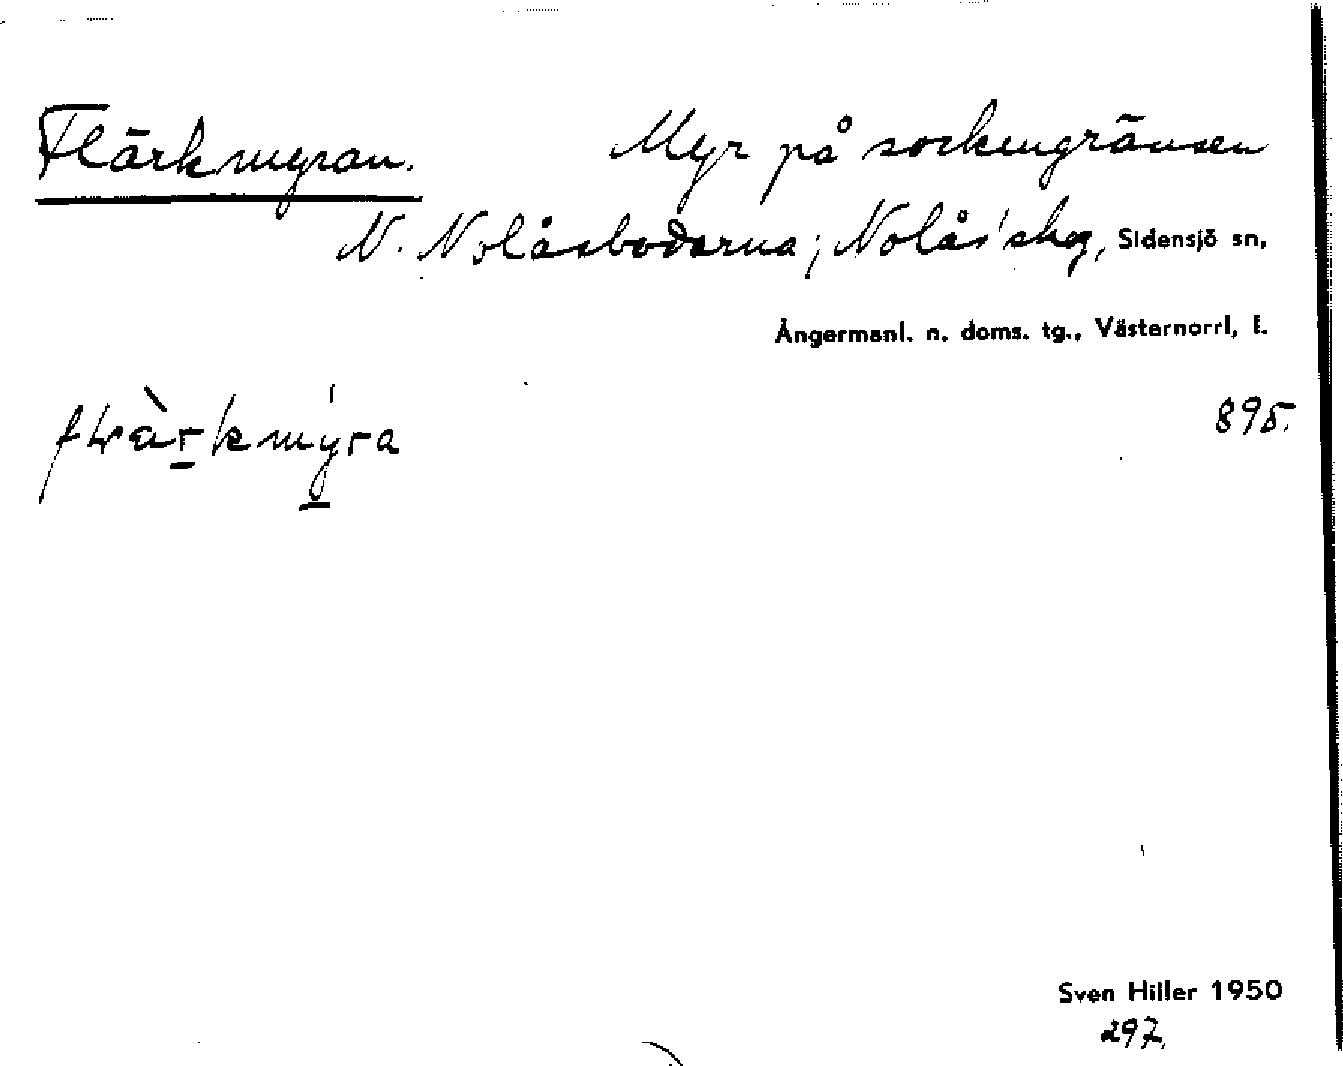 Flärkmyran.
Myr på sockengränsen
N. Nolåsbodarna; Nolås' skog, Sidensjö sn,
Ångermanl. n. doms. tg., Västernorrl, l.
895.
Sven Hiller 1950
297.